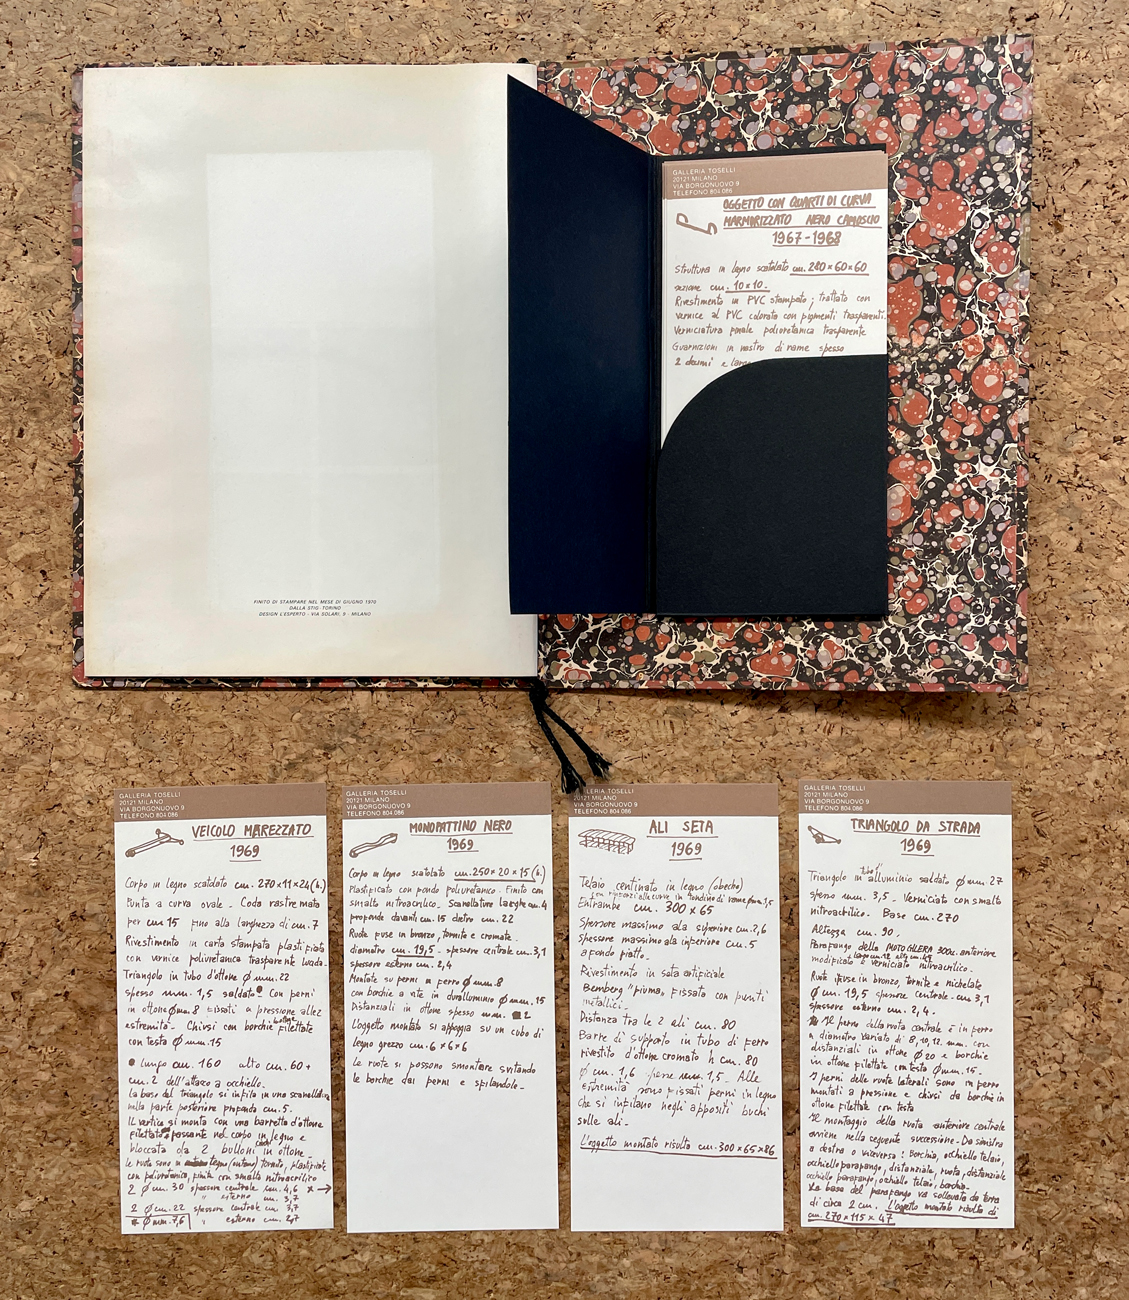 GALLERIA TOSELLI
20121 MILANO
VIA BORGONUOVO 9
TELEFONO 804 086
OGGETTO CON QUARTI DI CURVA
MARMORIZZATO NERO CAMOSCIO
1967-1968
Struttura in legno scatolato cm. 280×60×60
sezione cm. 10×10.
Rivestimento in PVC stampato; trattato con
vernice al PVC colorata con pigmenti trasparenti.
Verniciatura finale poliuretanica trasparente
Guarnizioni in nastro di rame spesso
2 decimi e
FINITO DI STAMPARE NEL MESE DI GIUGNO 1970
DALLA STIG - TORINO
DESIGN L'ESPERTO - VIA SOLARI, 9 - MILANO
GALLERIA TOSELLI
20121 MILANO
VIA BORGONUOVO 9
TELEFONO 804 086
VEICOLO MAREZZATO
1969
Corpo in legno scatolato cm. 270×11×24(h.)
Punta a curva ovale. Coda rastremata
per cm 15 fino alla larghezza di cm. 7
Rivestimento in carta stampata plastificata
con vernice poliuretanica trasparente lucida.
Triangolo in tubo d'ottone Ø mm. 22
spesso mm. 1,5 saldato con perni
in ottone Ø mm. 8 fissati a pressione alle
estremità. Chiusi con borchie filettate
con testa Ø mm. 15
lungo cm. 160 alto cm. 60 +
cm. 2 dell'attacco a occhiello.
La base del triangolo si infila in una scanellatura
nella parte posteriore profonda cm. 5.
Il vertice si monta con una barretta d'ottone
filettato passante nel corpo in legno e
bloccata da 2 bulloni in ottone.
Le ruote sono in legno (ontano) tornito, plastificate
con poliuretanica, finite con smalto nitroacrilico
2 Ø cm. 30 spessore centrale cm. 4,6
" esterno cm. 3,7
2 Ø cm. 22 spessore centrale cm. 3,7
Ø mm. 7,6 " esterno cm. 2,7
GALLERIA TOSELLI
20121 MILANO
VIA BORGONUOVO 9
TELEFONO 804 086
MONOPATTINO NERO
1969
Corpo in legno scatolato cm. 250×20×15(h.)
Plastificato con fondo poliuretanico. Finito con
smalto nitroacrilico. Scanellature larghe cm. 4
profonde davanti cm. 15 dietro cm. 22
Ruote fuse in bronzo, tornite e cromate.
diametro cm. 19,5 - spessore centrale cm. 3,1
spessore esterno cm. 2,4
Montate su perni in ferro Ø mm. 8
con borchie a vite in duralluminio Ø mm. 15
Distanziali in ottone spesso mm. 2
L'oggetto montato si appoggia su un cubo di
legno grezzo cm. 6×6×6
Le ruote si possono smontare svitando
le borchie dai perni e sfilandole.
GALLERIA TOSELLI
20121 MILANO
VIA BORGONUOVO 9
TELEFONO 804 086
ALI SETA
1969
Telaio centinato in legno (obeche)
con rinforzi alle curve in tondino di rame mm. 1,5
Entrambe cm. 300 × 65
Spessore massimo ala superiore cm. 2,6
Spessore massimo ala inferiore cm. 5
a fondo piatto.
Rivestimento in seta artificiale
Bemberg "piuma, fissata con punti
metallici.
Distanza tra le 2 ali cm. 80
Barre di supporto in tubo di ferro
rivestito d'ottone cromato h cm. 80
Ø cm. 1,6 spesse mm. 1,5. Alle
estremità sono fissati perni in legno
che si infilano negli appositi buchi
sulle ali.
L'oggetto montato risulta cm. 300×65×86
GALLERIA TOSELLI
20121 MILANO
VIA BORGONUOVO 9
TELEFONO 804 086
TRIANGOLO DA STRADA
1969
Triangolo in tubo alluminio saldato Ø mm. 27
spesso mm. 3,5. Verniciato con smalto
nitroacrilico. Base cm. 270
Altezza cm. 90.
Parafango della MOTO GILERA 300cc. anteriore
modificato e verniciato nitroacrilico.
Ruote fuse in bronzo tornite e nichelate
Ø cm. 19,5 spessore centrale cm 3,1
spessore esterno cm. 2,4.
Il perno della ruota centrale è in ferro
a diametro variato di 8, 10, 12 mm. con
distanziali in ottone Ø 20 e borchie
in ottone filettate con testa Ø mm. 15.
I perni delle ruote laterali sono in ferro
montati a pressione e chiusi da borchie in
ottone filettate con testa
Il montaggio della ruota anteriore centrale
avviene nella seguente successione. Da sinistra
a destra o viceversa: Borchia, occhiello telaio,
occhiello parafango, distanziale, ruota, distanziale
occhiello parafango, occhiello telaio, borchia.
La base del parafango va sollevata da terra
di circa 2 cm. L'oggetto montato risulta di
cm. 270×115×47